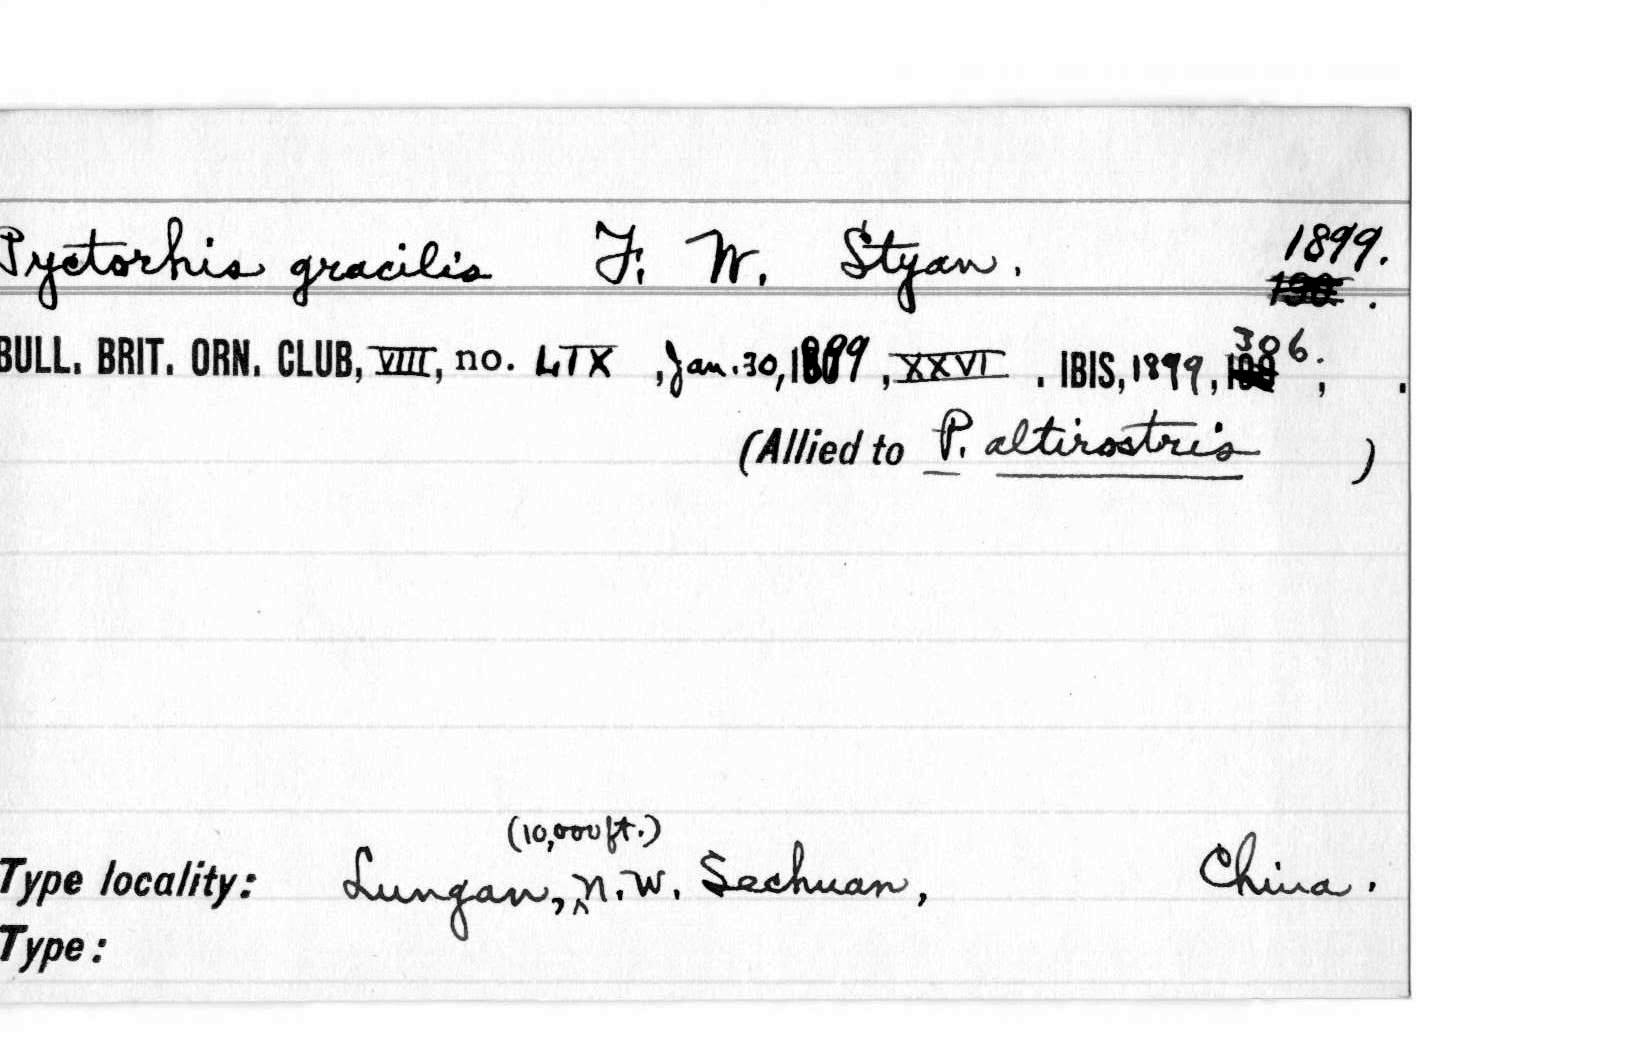 Pyctorhis gracilis F. W. Styan. 1899.
BULL. BRIT. ORN. CLUB, VIII, no. LIX, Jan. 30, 1899, XXVI. IBIS, 1899, 306.;
(Allied to P. altirostris)
(10,000 ft.)
Type locality: Lungan, N.W. Sechuan, China.
Type: